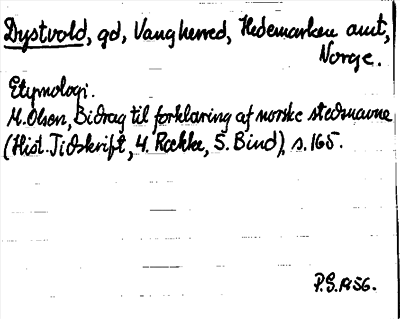 Dystvold, gd, Vang herred, Hedemarken amt,
Norge.
Etymologi.
M. Olsen, Bidrag til forklaring af norske stedsnavne
(Hist. Tidskrift, 4. Række, 5. Bind), s. 165.
P.S. 1956.